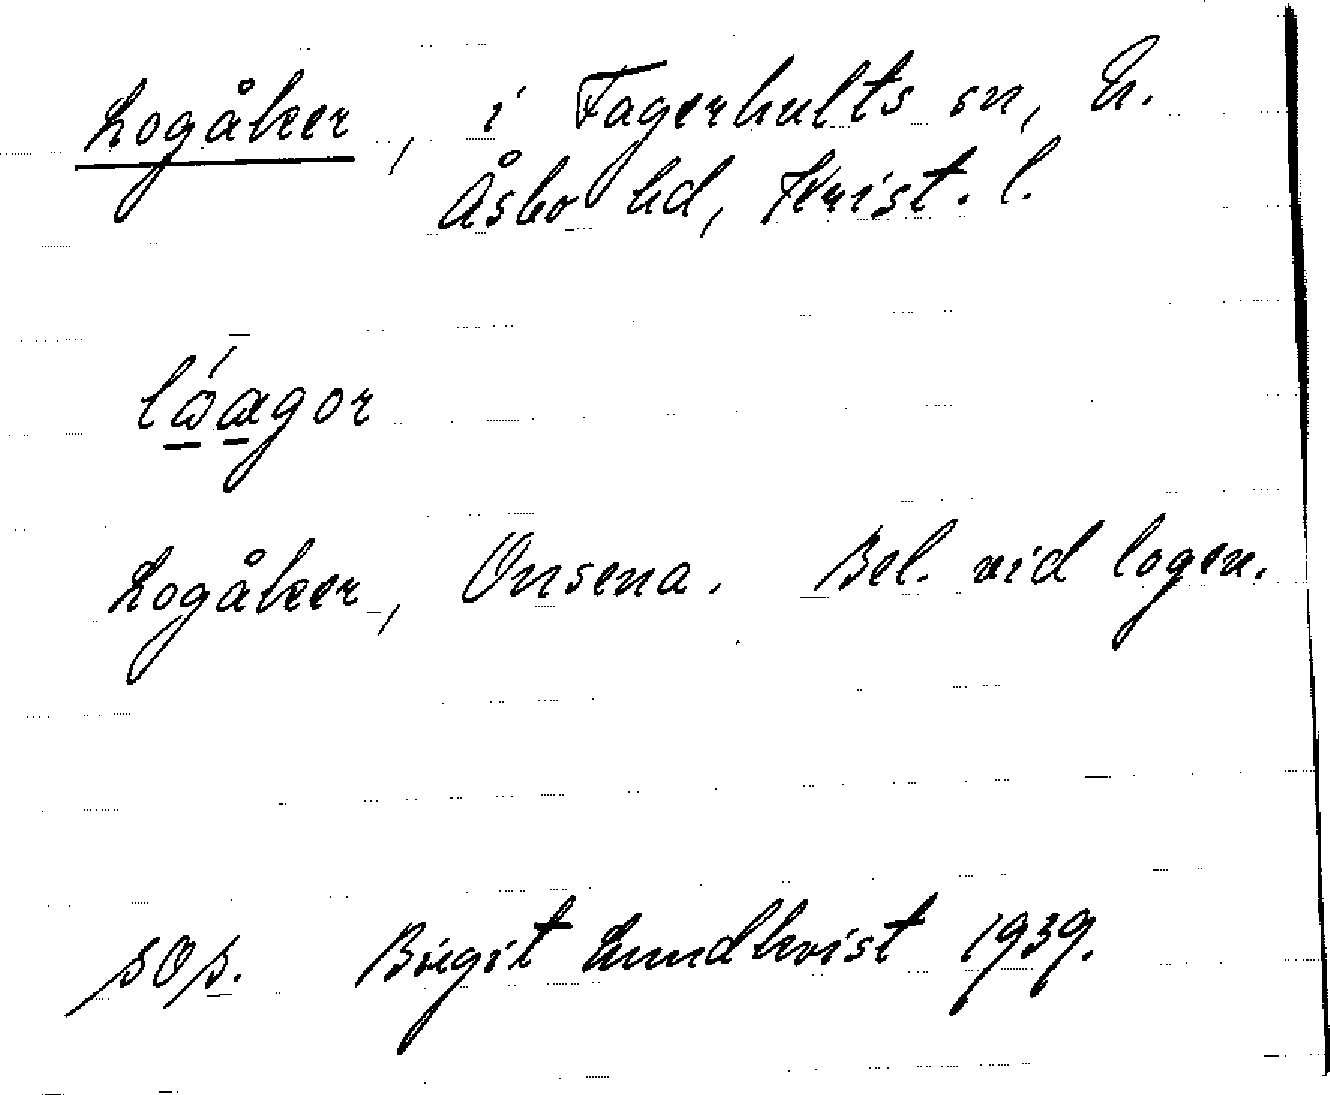 Logåker, i Fagerhults sn, N.
Åsbo hd, Krist. l.
lóagor
Logåker, Onsena. Bel. vid logen.
sOp. Birgit Lundkvist 1939.